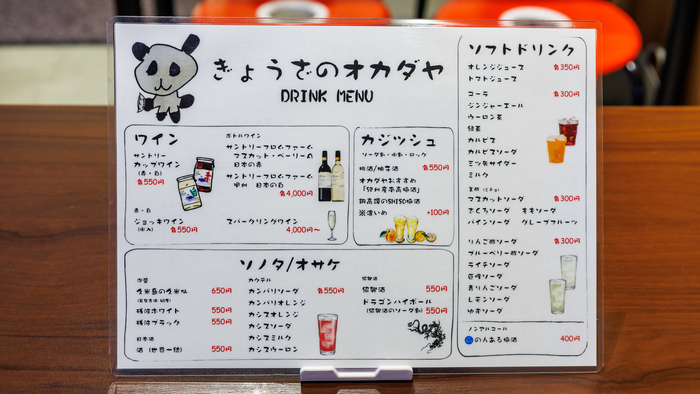 ぎょうざのオカダヤ
DRINK MENU
ワイン
サントリー
カップワイン
(赤・白)
各550円
赤・白
ジョッキワイン
(氷入)
各550円
ボトルワイン
サントリーフロムファーム
マスカット・ベーリーA
日本の赤
サントリーフロムファーム
甲州 日本の白
各4,000円
スパークリングワイン
4,000円〜
カジッシュ
ソーダ割・水割・ロック
各550円
オカダヤおすすめ
「紀州産南高梅酒」
鍛高譚のSHISO梅酒
※濃いめ +100円
ソノタ/オサケ
650円
550円
ブラック 550円
日本酒
酒 550円
カクテル
カンパリソーダ 各550円
カンパリオレンジ
カシスオレンジ
カシスソーダ
カシスミルク
カシスウーロン
紹興酒
紹興酒 550円
ドラゴンハイボール
(紹興酒のソーダ割) 550円
ソフトドリンク
オレンジジュース 各350円
トマトジュース
コーラ 各300円
ジンジャーエール
ウーロン茶
緑茶
カルピス
カルピスソーダ
三ツ矢サイダー
ミルク
マスカットソーダ 各300円
ざくろソーダ ももソーダ
パインソーダ グレープフルーツ
りんご酢ソーダ 各300円
ブルーベリー酢ソーダ
ライチソーダ
巨峰ソーダ
青りんごソーダ
レモンソーダ
ゆずソーダ
ノンアルコール
のんある梅酒 400円